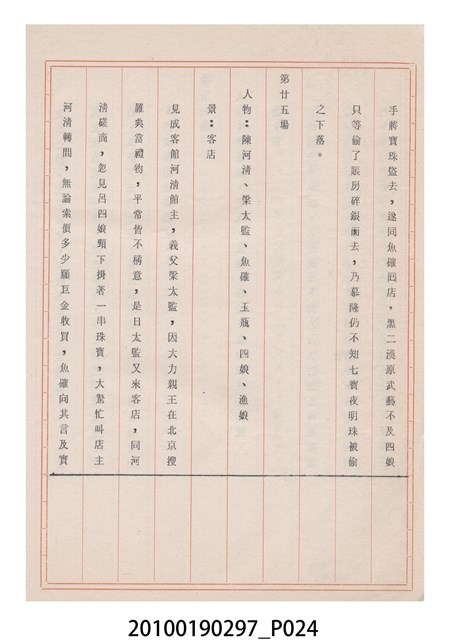 手將寶珠盜去，遂同魚確囘店。黑二漢原武藝不及四娘
只等偷了賬房碎銀而去，乃慕隆仍不知七寶夜明珠被偷
之下落。
第廿五場
人物：陳河清、梁太監、魚確、玉瓶、四娘、漁娘
景：客店
見成客館河清館主，義父梁太監，因大力親王在北京搜
羅典當禮物，平常皆不稱意，是日太監又來客店，同河
清磋商，忽見呂四娘頸下掛著一串珠寶，大驚忙叫店主
河清轉問，無論索價多少願巨金收買，魚確向其言及實
20100190297_P024